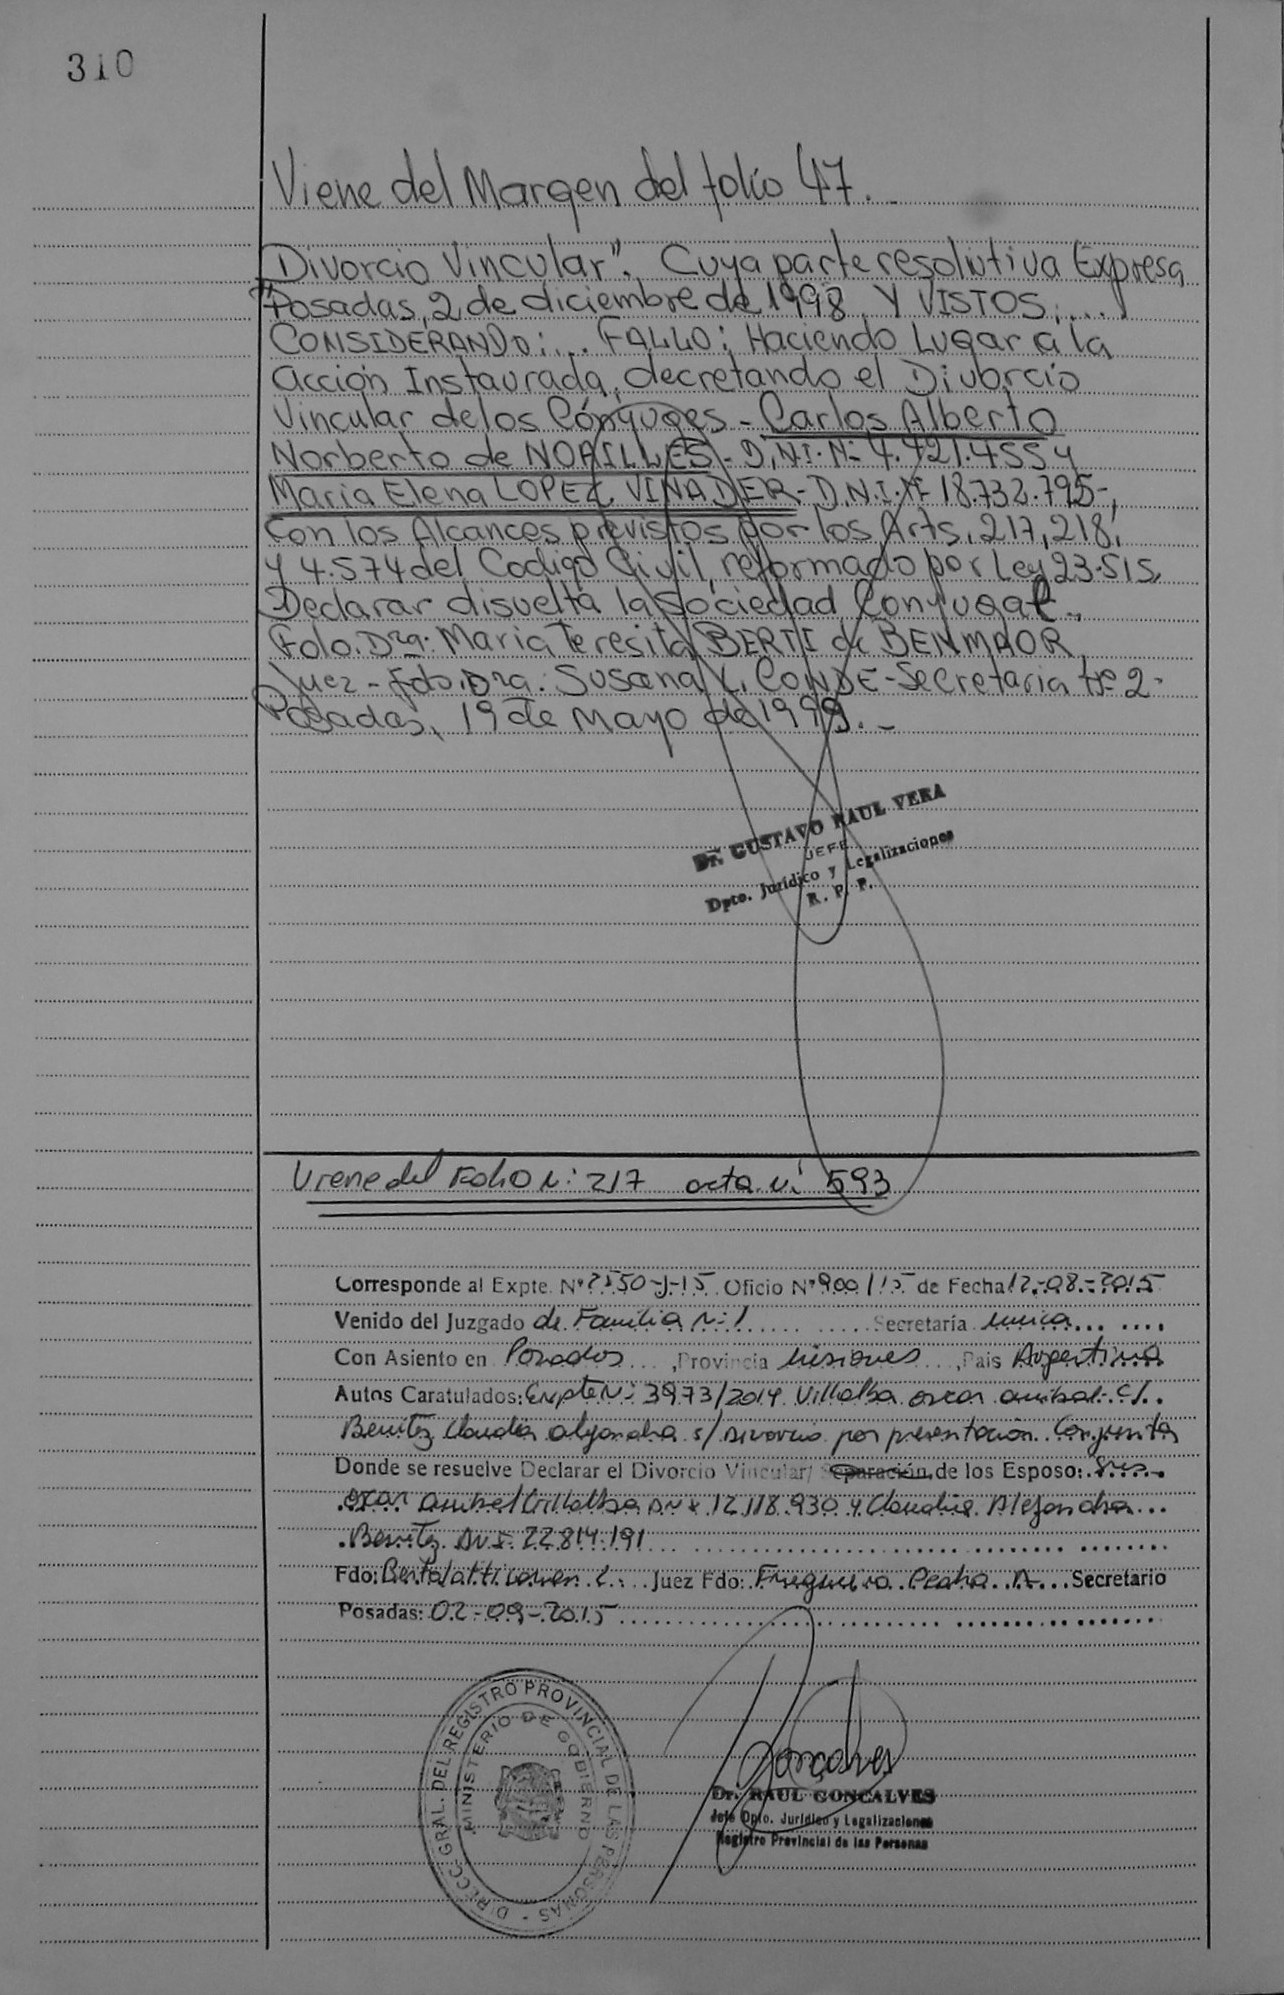 310
Viene del Margen del folio 47.-
Divorcio Vincular". Cuya parte resolutiva Expresa
"Posadas, 2 de diciembre de 1998. Y VISTOS:....
CONSIDERANDO:... FALLO: Haciendo Lugar a la
acción Instaurada, decretando el Divorcio
Vincular de los Cónyuges - Carlos Alberto
Norberto de NOAILLES - D.N.I. Nº 4.421.455 y
Maria Elena LOPEZ VIÑADER - D.N.I. Nº 18.732.795-,
Con los Alcances previstos por los Arts. 217, 218,
y 4.574 del Codigo Civil, reformado por Ley 23.515.
Declarar disuelta la sociedad Conyugal.
Fdo. Dra. Maria Teresita BERTI de BENMAOR
Juez - Fdo. Dra. Susana K. CONDE - Secretaria Nº 2.
Posadas, 19 de Mayo de 1999.-
Dr. GUSTAVO RAUL VERA
JEFE
Dpto. Jurídico y Legalizaciones
R. P. P.
Viene del Folio N: 217 acta N: 593
Corresponde al Expte. Nº 2550-J-15 Oficio Nº 900/15 de Fecha 12-08-2015
Venido del Juzgado de Familia N: 1 Secretaría unica
Con Asiento en Posadas, Provincia Misiones, Pais Argentina
Autos Caratulados: Expte N: 3973/2014 Villalba oscar anibal c/
Benitez Claudia alejandra s/ Divorcio por presentación Conjunta
Donde se resuelve Declarar el Divorcio Vincular/ Separación de los Esposo: Sres
oscar anibal Villalba DNI 12.118.930 y Claudia Alejandra
Benitez DNI 22.814.191
Fdo: Juez Fdo: Pedro A. Secretario
Posadas: 02-09-2015
DIRECC. GRAL. DEL REGISTRO PROVINCIAL DE LAS PERSONAS
MINISTERIO DE GOBIERNO
Goncalves
Dr. RAUL GONCALVES
Jefe Dpto. Jurídico y Legalizaciones
Registro Provincial de las Personas